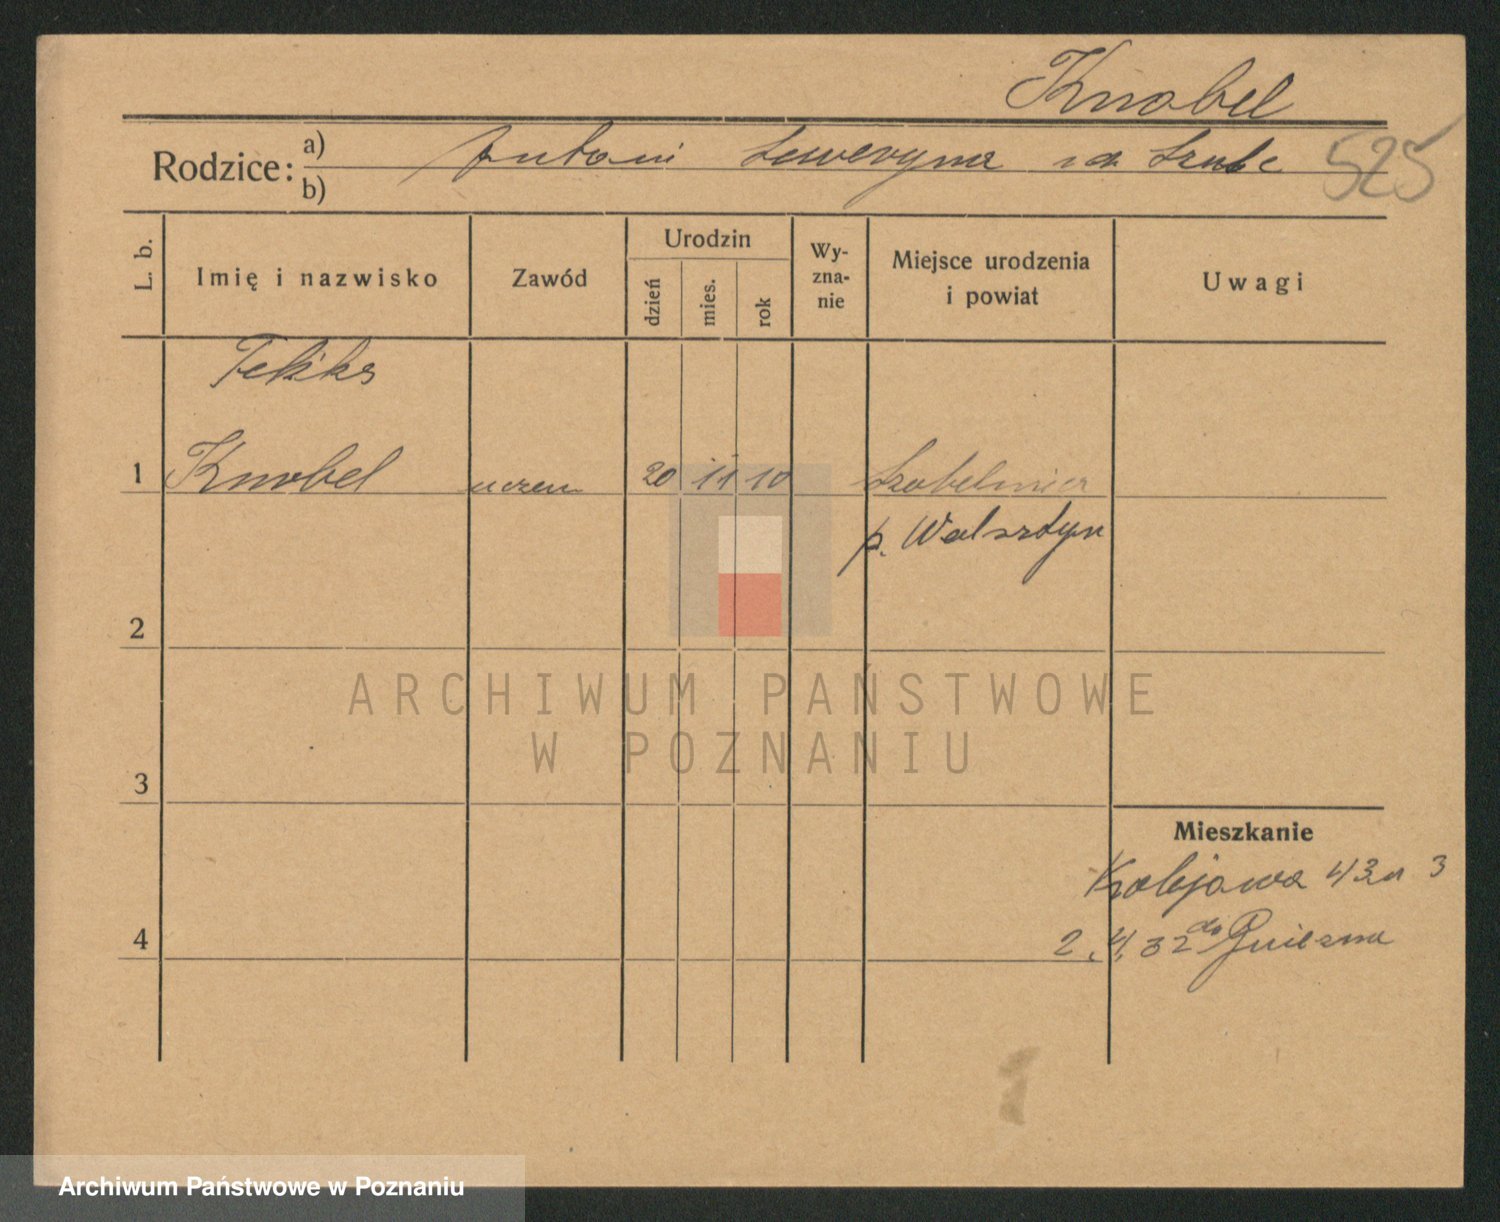 Knobel
Rodzice: a) Antoni Seweryna z d. Szulc 525
b)
L. b. Imię i nazwisko Zawód Urodzin dzień mies. rok Wy-zna-nie Miejsce urodzenia i powiat Uwagi
Feliks
1 Knobel uczeń 20 11 10
p. Wolsztyn
2
ARCHIWUM PAŃSTWOWE
W POZNANIU
3
Mieszkanie
Kolejowa 43 m 3
4 2.4.32 do Gniezna
Archiwum Państwowe w Poznaniu